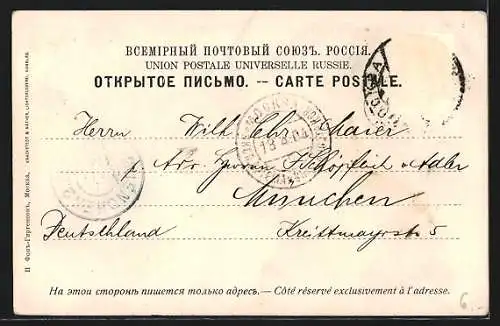 ВСЕМІРНЫЙ ПОЧТОВЫЙ СОЮЗЪ. РОССІЯ.
UNION POSTALE UNIVERSELLE RUSSIE.
ОТКРЫТОЕ ПИСЬМО. -- CARTE POSTALE.
Herrn Wilh. Chr. Maier
Adr. Herren Schöpflich & Adler
München
Deutschland Kreittmayrstr 5
На этой сторонѣ пишется только адресъ. — Côté réservé exclusivement à l'adresse.
МОСКВА
МОСКВА
18
П Фонъ-Гиргенсонъ, Москва.
6.-